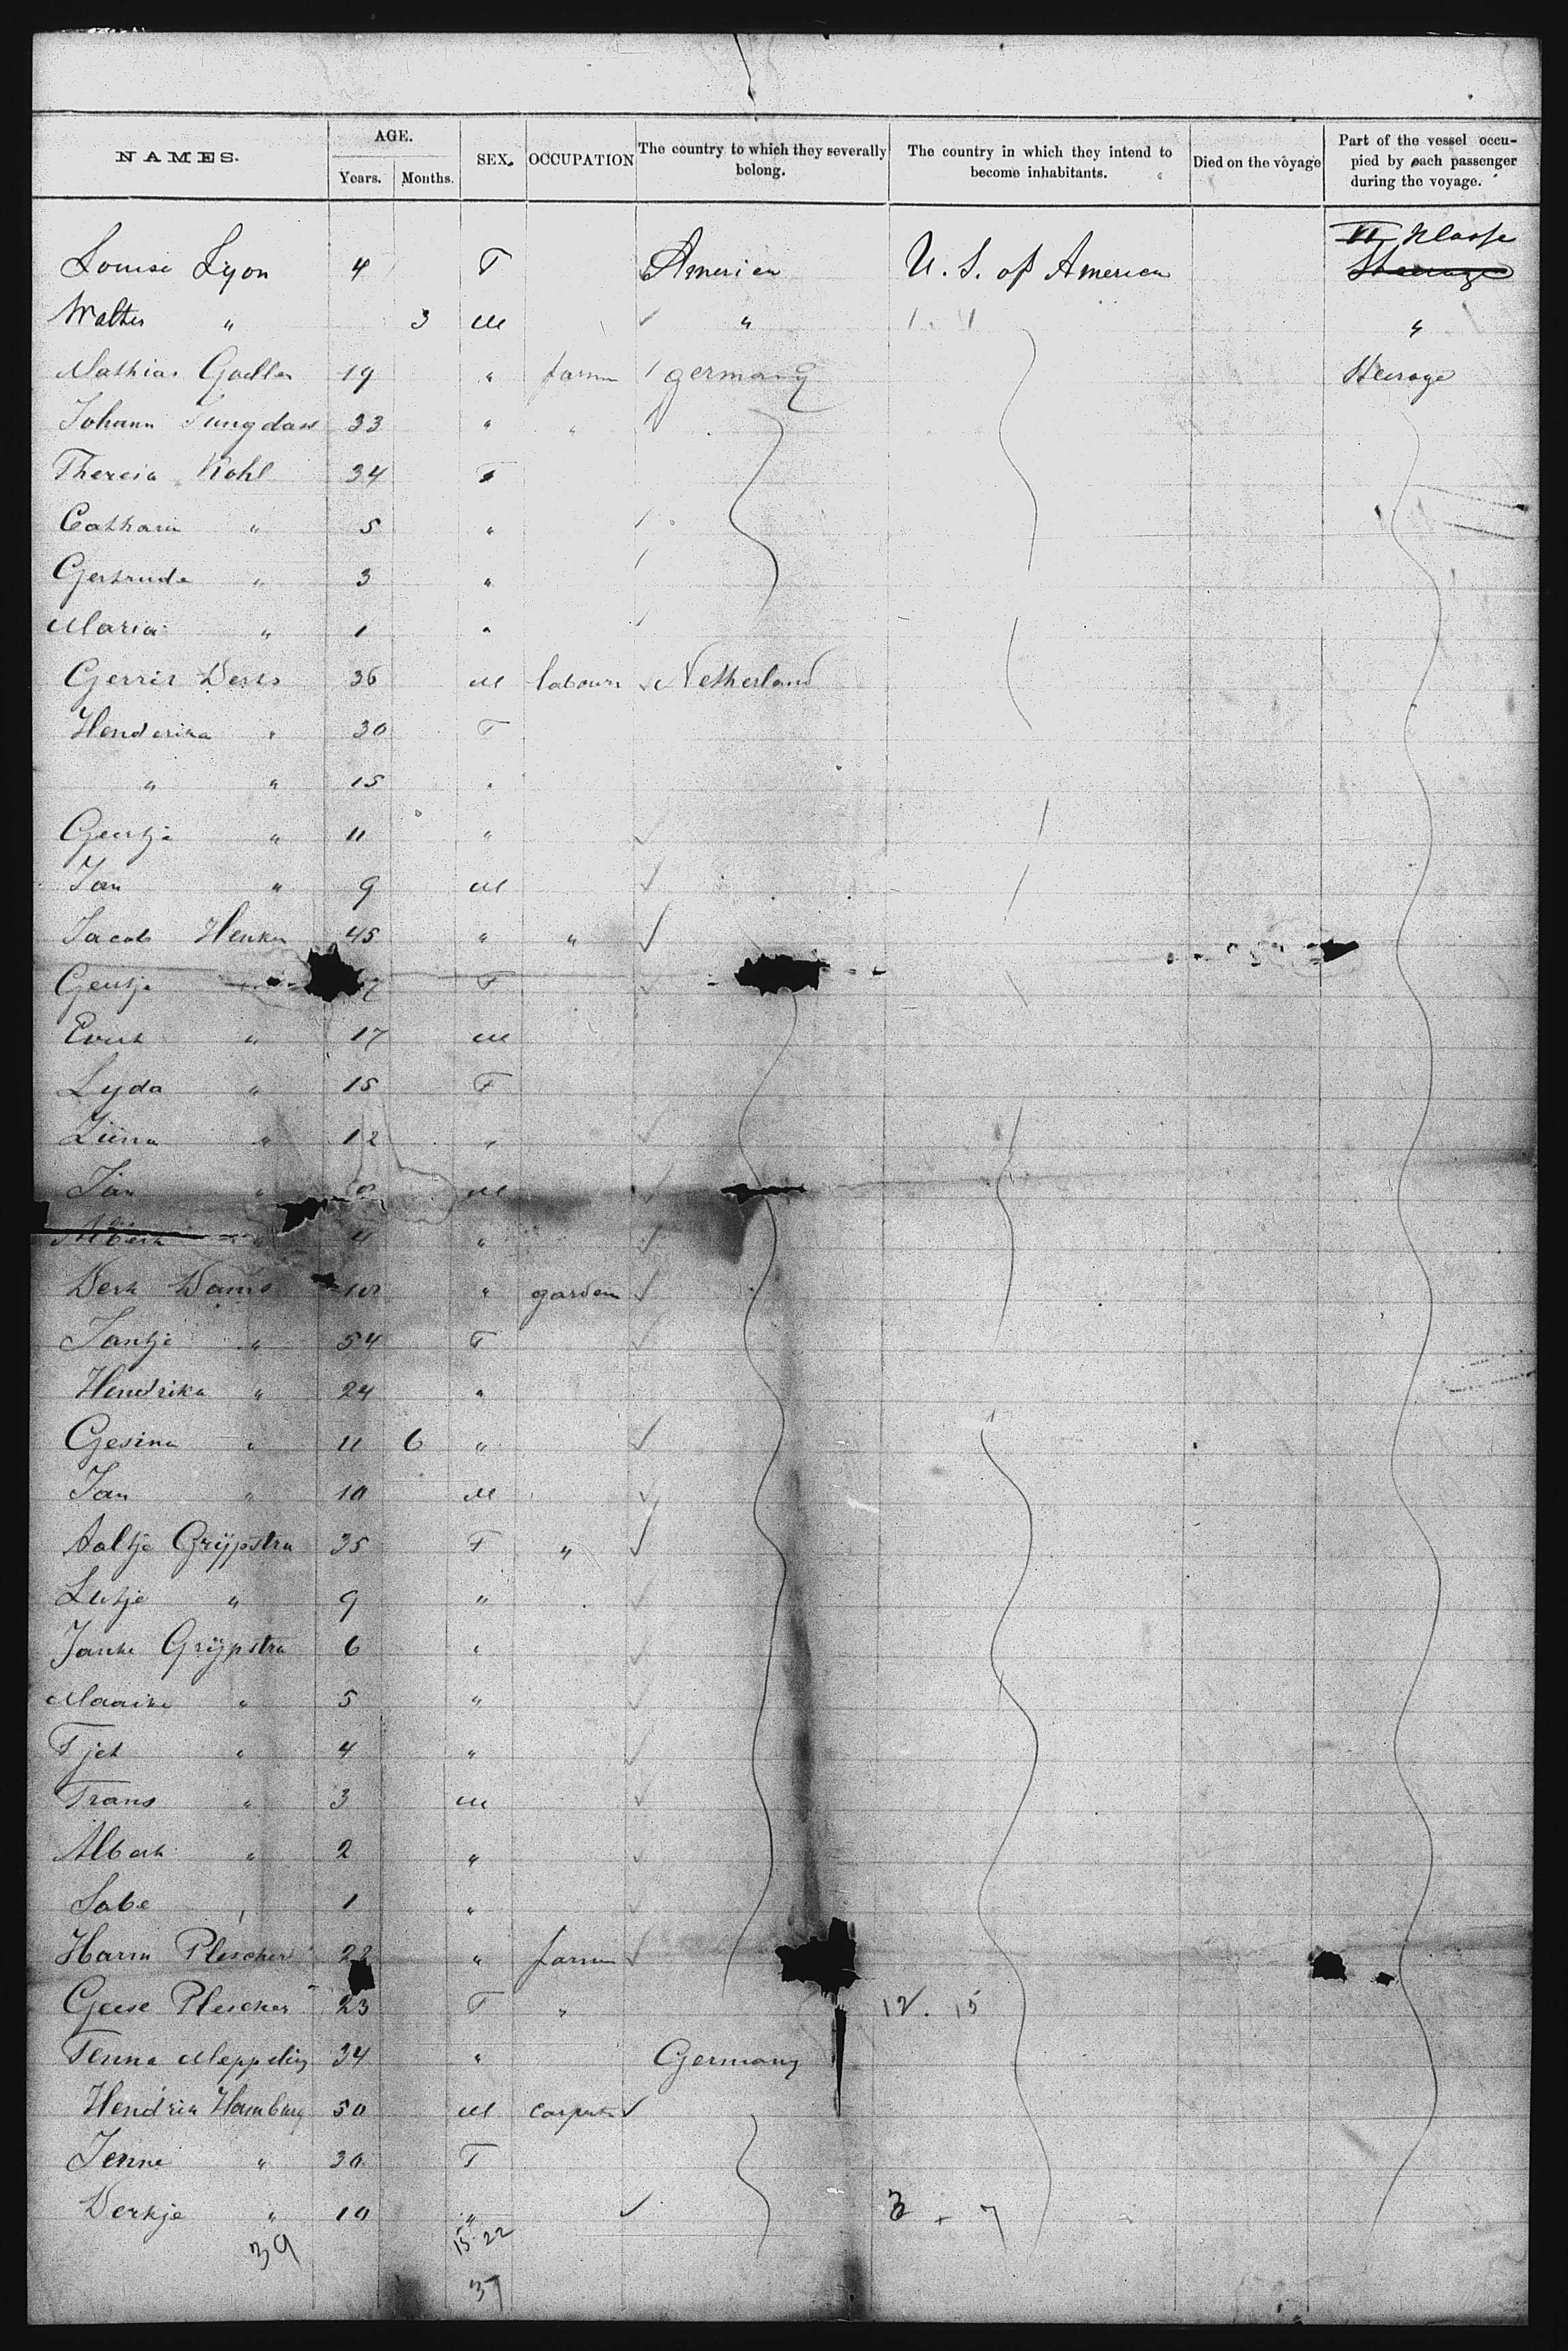 NAMES. AGE. SEX. OCCUPATION The country to which they severally belong. The country in which they intend to become inhabitants. Died on the voyage Part of the vessel occupied by each passenger during the voyage.
Years. Months.
Louise Lyon 4 F America U. S. of America II Klasse Steerage
Walter " 3 M " "
Mathias Goeller 19 " farm germany Steerage
Johann 33 " "
Theresia Kohl 34 F
Catharin " 5 "
Gertrude " 3 "
Maria " 1 "
Gerrit Derks 36 M labour Netherland
Henderika " 30 F
" " 15 "
Geertje " 11 "
Jan " 9 M
Jacob Henken 45 " "
Geertje F
Evert " 17 M
Lyda " 15 F
" 12 "
Jan " M
Albert " 4 "
Derk Dams "  garden
Jantje " 54 F
Hendrika " 24 "
Gesina " 11 6 "
Jan " 10 M
Aaltje Grijpstra 35 F "
Lutje " 9 "
Janke Grijpstra 6 "
Maaike " 5 "
Tjet " 4 "
Frans " 3 M
Albert " 2 "
Sabe " 1 "
Harm Plescher 22 " farm
Geese Plescher 23 F " 12. 15
Fenna Meppeling 34 " Germany
Hendrik Hamburg 50 M carpent
Jenne " 30 F
Derkje " 10 " 3 + 7
39 15 22
37